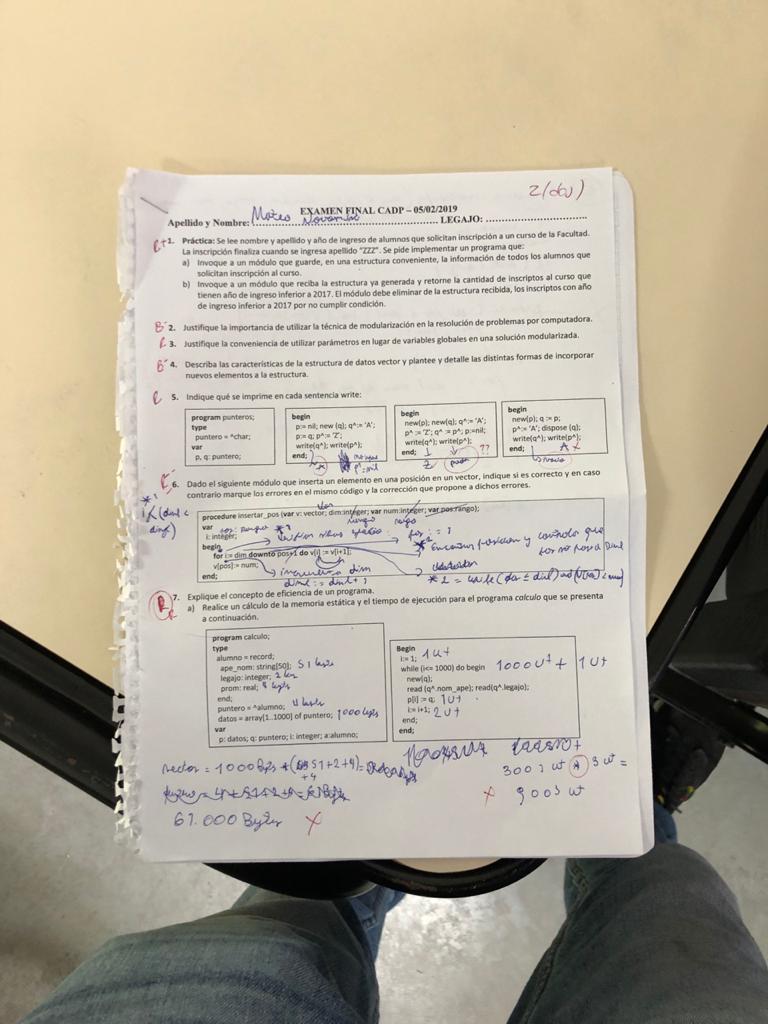 2(dos)
EXAMEN FINAL CADP – 05/02/2019
Apellido y Nombre: Mateo ........ LEGAJO: ..............................
R+ 1. Práctica: Se lee nombre y apellido y año de ingreso de alumnos que solicitan inscripción a un curso de la Facultad.
La inscripción finaliza cuando se ingresa apellido "ZZZ". Se pide implementar un programa que:
a) Invoque a un módulo que guarde, en una estructura conveniente, la información de todos los alumnos que
solicitan inscripción al curso.
b) Invoque a un módulo que reciba la estructura ya generada y retorne la cantidad de inscriptos al curso que
tienen año de ingreso inferior a 2017. El módulo debe eliminar de la estructura recibida, los inscriptos con año
de ingreso inferior a 2017 por no cumplir condición.
B- 2. Justifique la importancia de utilizar la técnica de modularización en la resolución de problemas por computadora.
R 3. Justifique la conveniencia de utilizar parámetros en lugar de variables globales en una solución modularizada.
B- 4. Describa las características de la estructura de datos vector y plantee y detalle las distintas formas de incorporar
nuevos elementos a la estructura.
R 5. Indique qué se imprime en cada sentencia write:
program punteros;
type
puntero = ^char;
var
p, q: puntero;
begin
p:= nil; new (q); q^:= 'A';
p:= q; p^:= 'Z';
write(q^); write(p^);
end;
begin
new(p); new(q); q^:= 'A';
p^:= 'Z'; q^ := p^; p:=nil;
write(q^); write(p^);
end;
??
Z
begin
new(p); q := p;
p^:= 'A'; dispose (q);
write(q^); write(p^);
end;
A X
R- 6. Dado el siguiente módulo que inserta un elemento en una posición en un vector, indique si es correcto y en caso
contrario marque los errores en el mismo código y la corrección que propone a dichos errores.
procedure insertar_pos (var v: vector; dim:integer; var num:integer; var pos:rango);
var
i: integer;
begin
for i:= dim downto pos+1 do v[i] := v[i+1];
v[pos]:= num;
end;
R 7. Explique el concepto de eficiencia de un programa.
a) Realice un cálculo de la memoria estática y el tiempo de ejecución para el programa calculo que se presenta
a continuación.
program calculo;
type
alumno = record;
ape_nom: string[50]; 51 bytes
legajo: integer; 2
prom: real; bytes
end;
puntero = ^alumno; 4 bytes
datos = array[1..1000] of puntero; 1000 bytes
var
p: datos; q: puntero; i: integer; a:alumno;
Begin
i:= 1; 1 ut
while (i<= 1000) do begin 1000 ut + 1 ut
new(q);
read (q^.nom_ape); read(q^.legajo);
p[i] := q; 1 ut
i:= i+1; 2 ut
end;
end;
vector = 1000 Bytes * (51+2+4)=
+4
3003 ut * 3 ut =
61.000 Bytes X
X 9003 ut